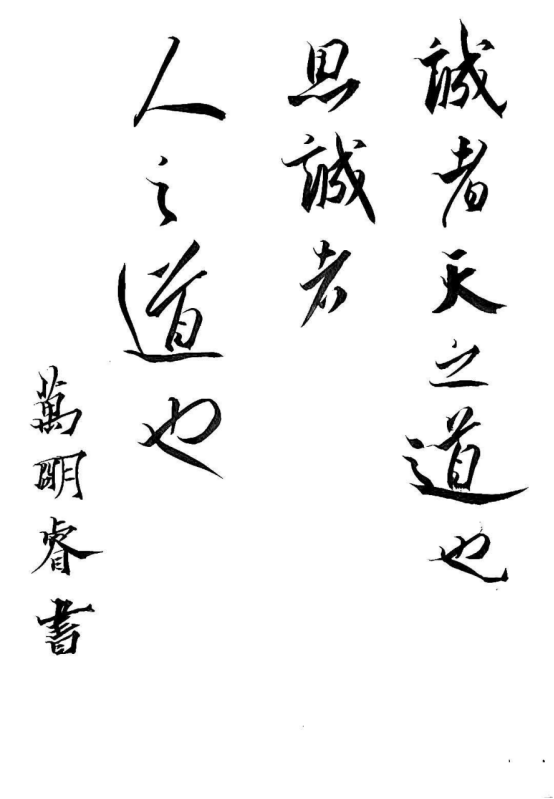 誠者天之道也
思誠者
人之道也
萬明睿書